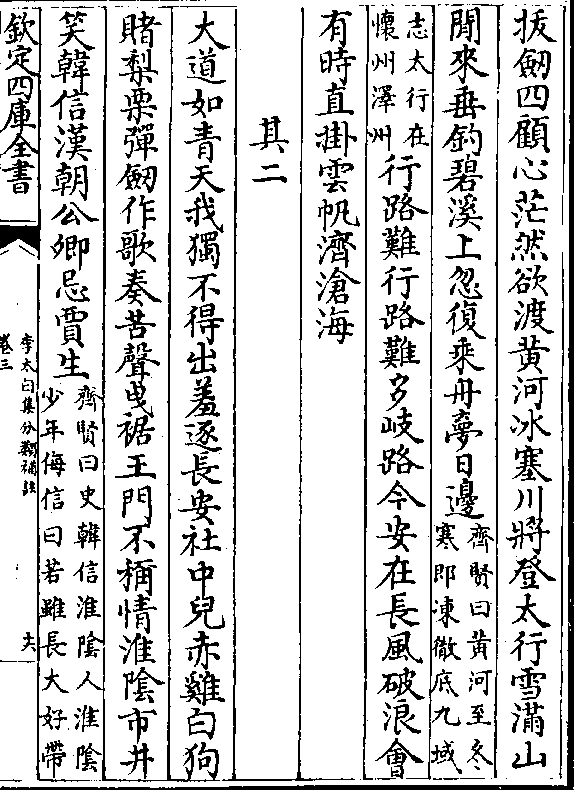 拔劒四顧心茫然欲渡黃河冰塞川將登太行雪滿山
閒來垂釣碧溪上忽復乘舟夢日邊齊賢曰黃河至冬
寒即凍徹底九域
志太行在
懷州澤州行路難行路難多岐路今安在長風破浪會
有時直掛雲帆濟滄海
其二
大道如青天我獨不得出羞逐長安社中兒赤雞白狗
賭梨栗彈劒作歌奏苦聲曳裾王門不稱情淮陰市井
笑韓信漢朝公卿忌賈生齊賢曰史韓信淮陰人淮陰
少年侮信曰若雖長大好帶
欽定四庫全書
李太白集分類補註
卷三
十六